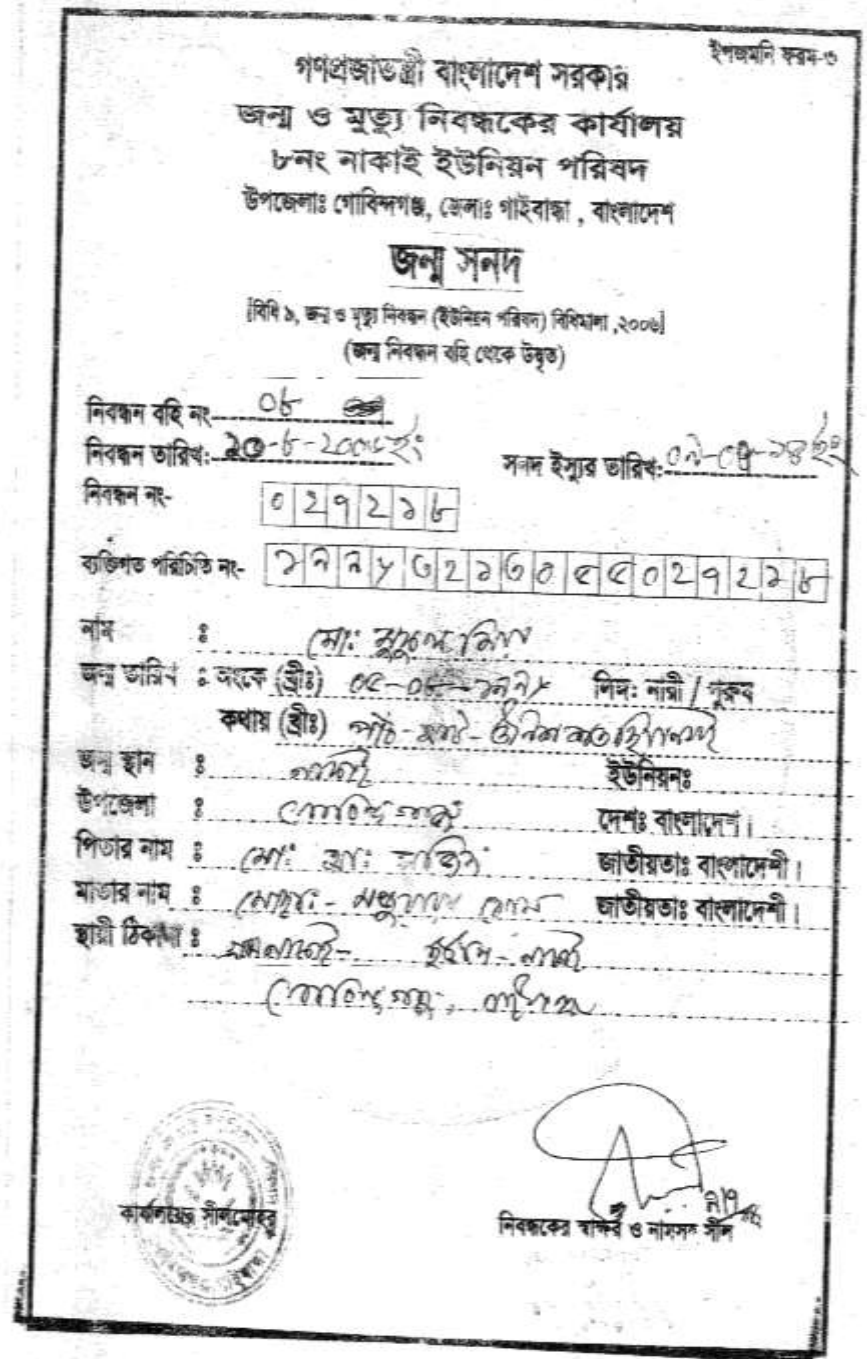 ইপজমনি ফরম-৩
গণপ্রজাতন্ত্রী বাংলাদেশ সরকার
জন্ম ও মৃত্যু নিবন্ধকের কার্যালয়
৮নং নাকাই ইউনিয়ন পরিষদ
উপজেলাঃ গোবিন্দগঞ্জ, জেলাঃ গাইবান্ধা , বাংলাদেশ
জন্ম সনদ
[বিধি ৯, জন্ম ও মৃত্যু নিবন্ধন (ইউনিয়ন পরিষদ) বিধিমালা ,২০০৬]
(জন্ম নিবন্ধন বহি থেকে উদ্বৃত)
নিবন্ধন বহি নং- ০৮
নিবন্ধন তারিখ: -৮-২০০৮ইং সনদ ইস্যুর তারিখ:
নিবন্ধন নং- ০২৭২১৮
ব্যক্তিগত পরিচিতি নং- ১৯৯৮৩২১৩০৫৫০২৭২১৮
নাম ঃ মোঃ মিয়া
জন্ম তারিখ ঃ অংকে (খ্রীঃ) ০৫-০৮-১৯৯৮ লিঙ্গ: নারী / পুরুষ
কথায় (খ্রীঃ) পাঁচ-আগষ্ট-
জন্ম স্থান ঃ নাকাই ইউনিয়নঃ
উপজেলা ঃ গোবিন্দগঞ্জ দেশঃ বাংলাদেশ।
পিতার নাম ঃ মোঃ আঃ জাতীয়তাঃ বাংলাদেশী।
মাতার নাম ঃ মোছাঃ - বেগম জাতীয়তাঃ বাংলাদেশী।
স্থায়ী ঠিকানা ঃ - নাকাই
গোবিন্দগঞ্জ, গাইবান্ধা
কার্যালয়ের সীলমোহর
নিবন্ধকের স্বাক্ষর ও নামসহ সীল